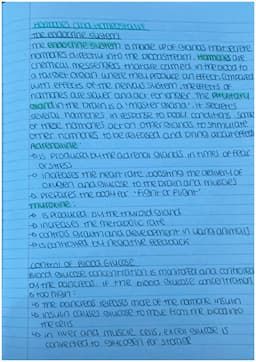 Hormones and Homeostasis
The endocrine system
The endocrine system is made up of glands that secrete
hormones directly into the bloodstream. Hormones are
chemical messengers that are carried in the blood to
a target organ where they produce an effect. Compared
with effects of the nervous system, the effects of
hormones are slower and act for longer. The pituitary
gland in the brain is a 'master gland'. It secretes
several hormones in response to body conditions. Some
of these hormones act on other glands to stimulate
other hormones to be released and bring about effects
Adrenaline:
↳ is produced by the adrenal glands in times of fear
or stress
↳ increases the heart rate, boosting the delivery of
oxygen and glucose to the brain and muscles
↳ prepares the body for 'fight or flight'
Thyroxine:
↳ is produced by the thyroid gland
↳ increases the metabolic rate
↳ controls growth and development in young animals
↳ is controlled by negative feedback
Control of Blood Glucose
Blood glucose concentration is monitored and controlled
by the pancreas. If the blood glucose concentration
is too high:
↳ the pancreas releases more of the hormone insulin
↳ insulin causes glucose to move from the blood into
the cells
↳ in liver and muscle cells, excess glucose is
converted to glycogen for storage